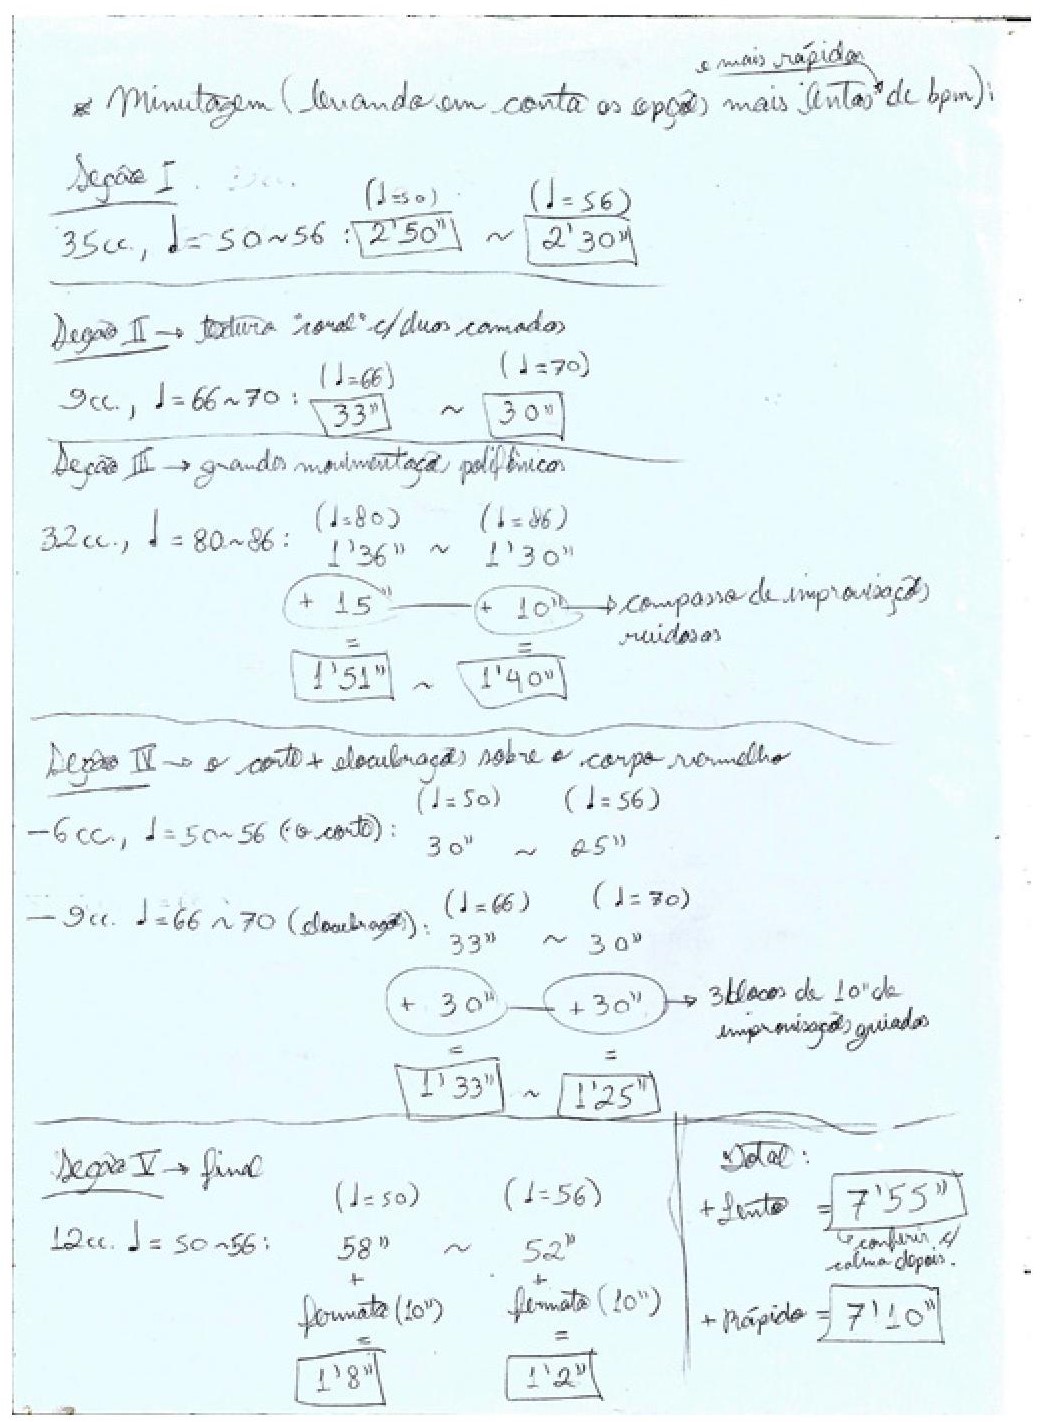 e mais rápidas
* Minutagem (levando em conta as opções mais lentas de bpm):
Seção I
(♩=50) (♩=56)
35cc., ♩=50~56 : 2'50" ~ 2'30"
Seção II → textura "coral" c/ duas camadas
(♩=66) (♩=70)
9cc., ♩=66~70 : 33" ~ 30"
Seção III → grandes movimentações polifônicas
(♩=80) (♩=86)
32cc., ♩=80~86 : 1'36" ~ 1'30"
+ 15" — + 10" → compasso de improvisações
ruidosas
= =
1'51" ~ 1'40"
Seção IV → o corte + elocubrações sobre o corpo vermelho
(♩=50) (♩=56)
- 6cc., ♩=50~56 (o corte) : 30" ~ 25"
(♩=66) (♩=70)
- 9cc. ♩=66~70 (elocubrações) : 33" ~ 30"
+ 30" — +30" → 3 blocos de 10" de
improvisações guiadas
= =
1'33" ~ 1'25"
Seção V → final
(♩=50) (♩=56)
12cc. ♩=50~56 : 58" ~ 52"
+ +
fermata (10") fermata (10")
= =
1'8" 1'2"
Total:
+ Lento = 7'55"
↳ conferir c/
calma depois.
+ Rápido = 7'10"